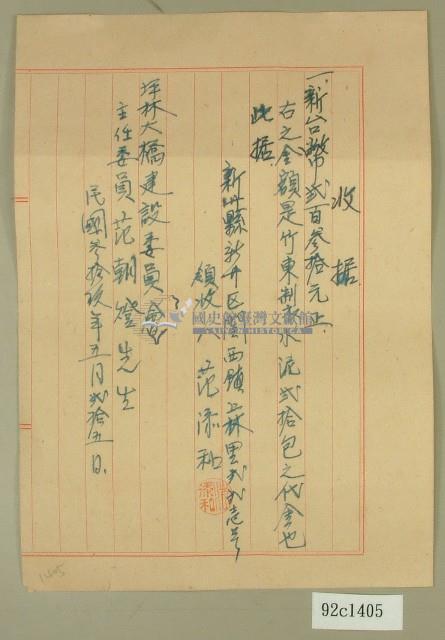 收据
一.新台幣弍百叁拾元正
右之金額是竹東制水泥弍拾包之代金也
此据
新竹縣新竹区關西鎮上林里弍弍壱号
領收人 范添和
添和
坪林大橋建設委員會
主任委員 范朝燈先生
民國叁拾玖年五月弍拾五日
國史館臺灣文獻館
TAIWAN HISTORICA
1405
92c1405